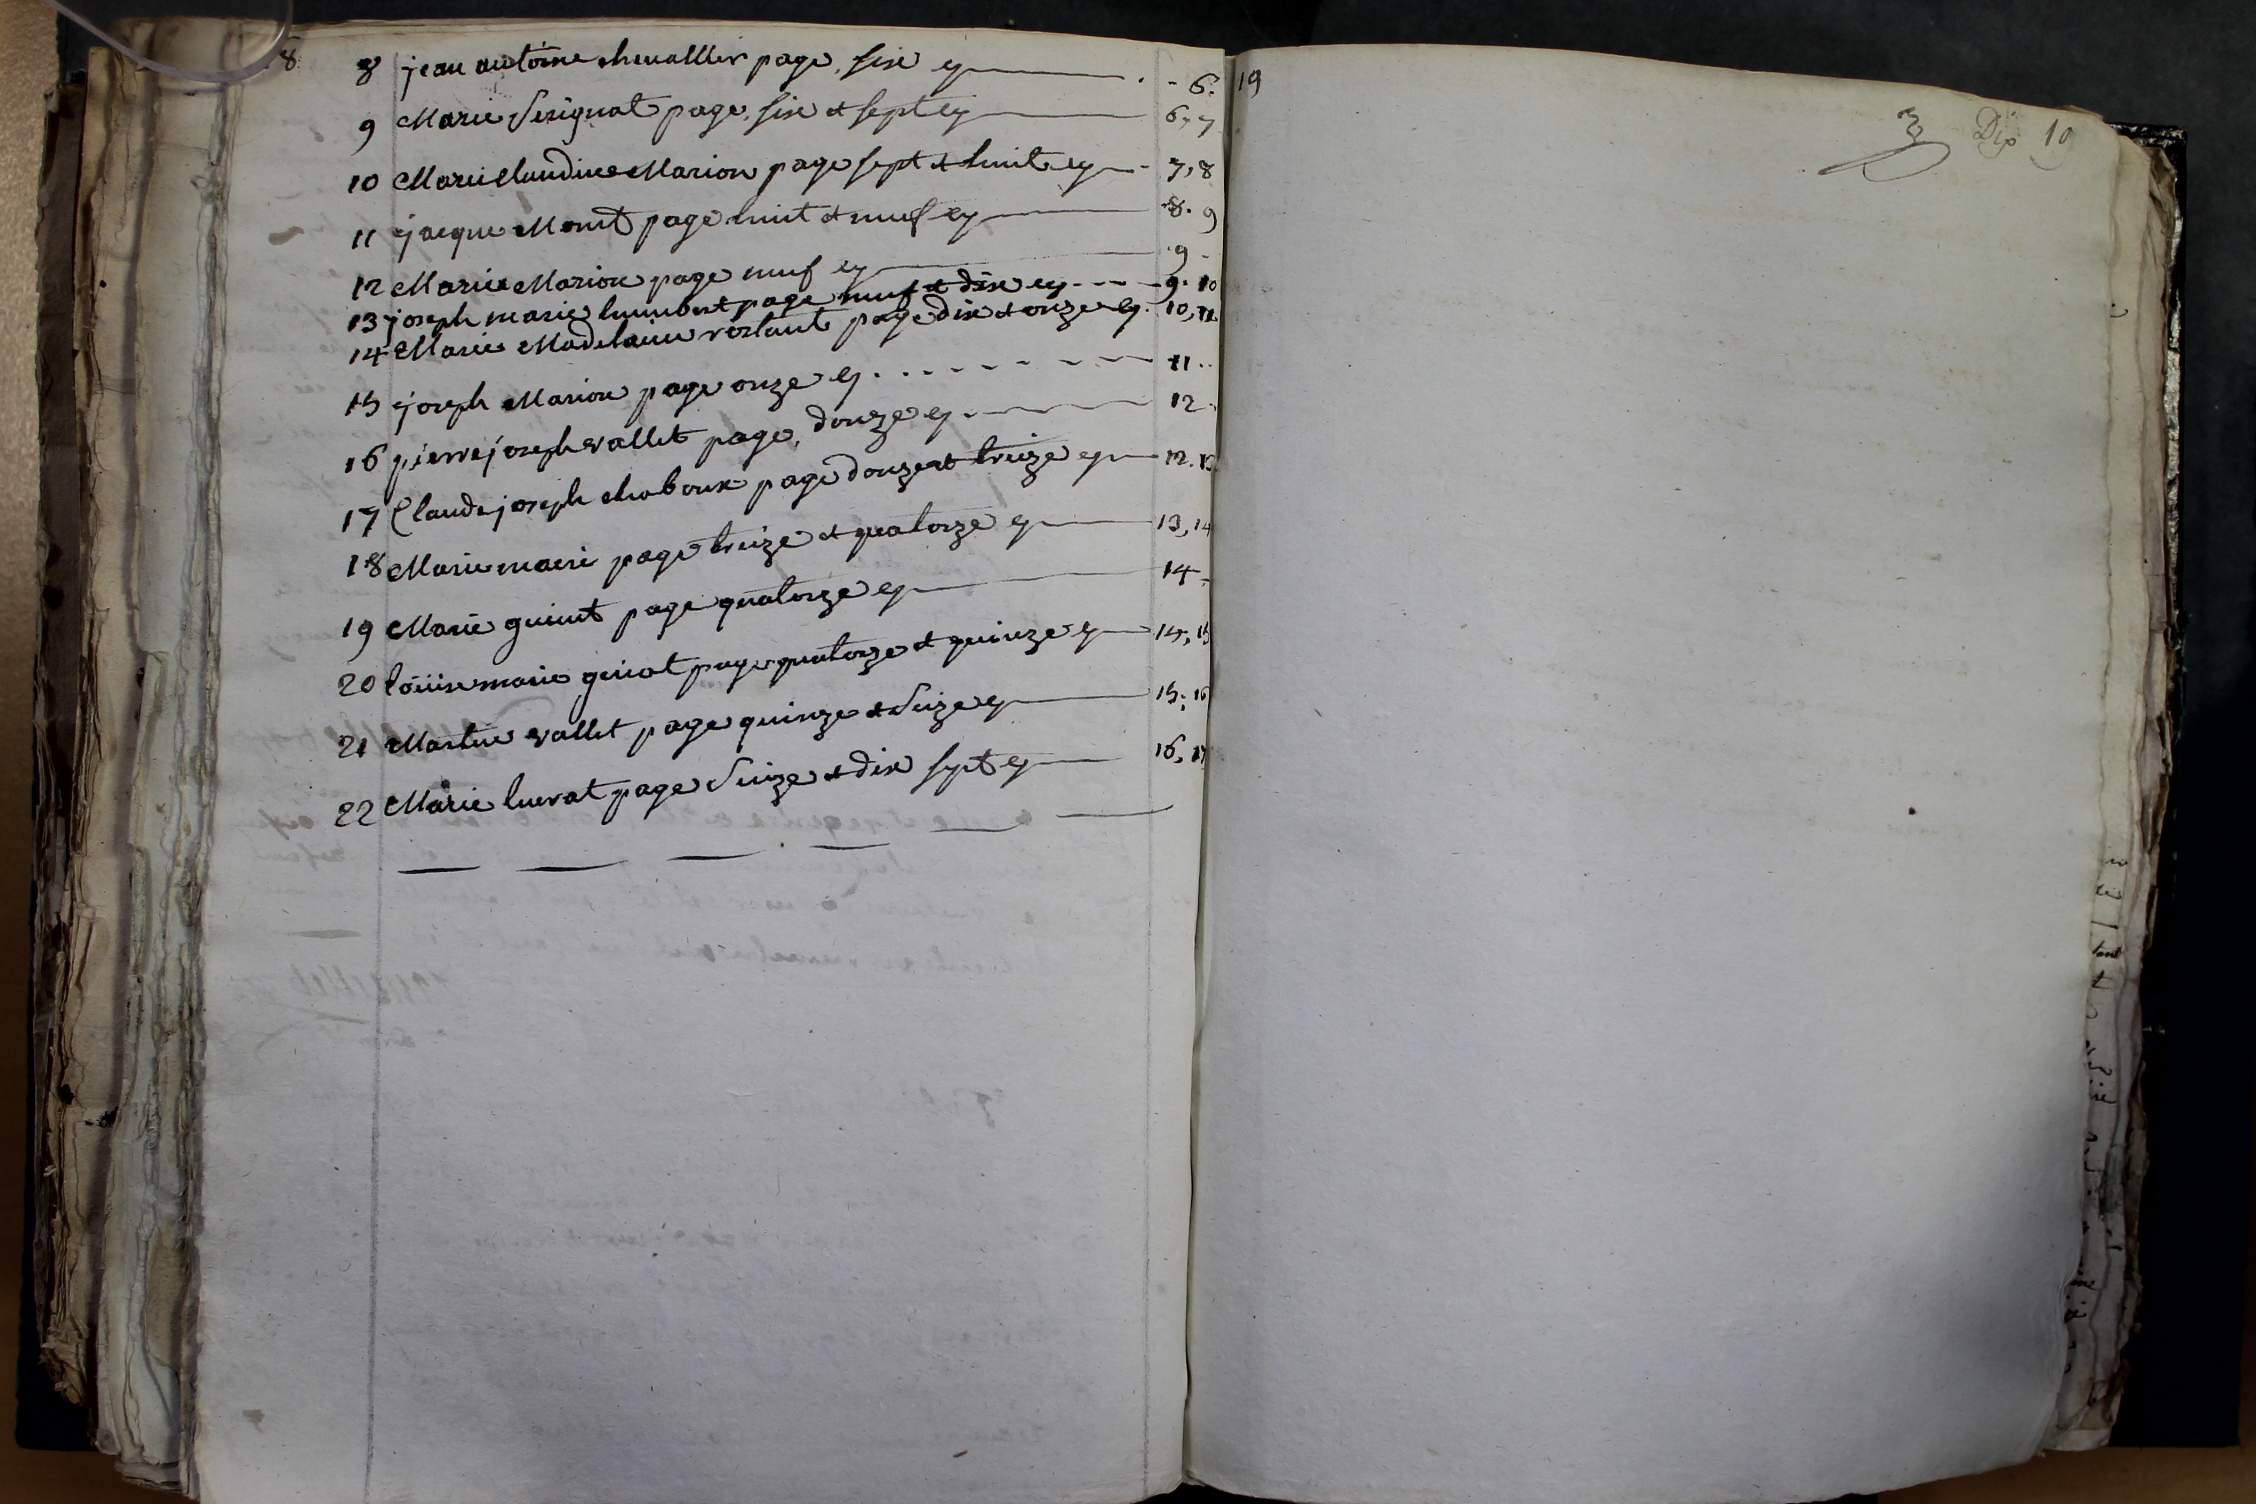 8
8 jean antoine chevallier page six cy - 6.
9 Marie Serignat page six et sept cy 6, 7
10 Marie Claudine Marion page sept et huit cy 7, 8
11 jacque Monet page huit et neuf cy 8. 9
12 Marie Marion page neuf cy 9
13 joseph marie humbert page neuf et dix cy 9. 10
14 Marie Madelaine page dix et onze cy. 10, 11
15 joseph Marion page onze cy 11
16 pierre joseph vallet page douze cy 12
17 Claude joseph chaboux page douze et treize cy 12. 13
18 Marie page treize et quatorze cy 13, 14
19 Marie page quatorze cy 14
20 loüise marie page quatorze et quinze cy 14, 15
21 vallet page quinze et Seize cy 15, 16
22 Marie page Seize et dix sept cy 16, 17
19
Dix 19